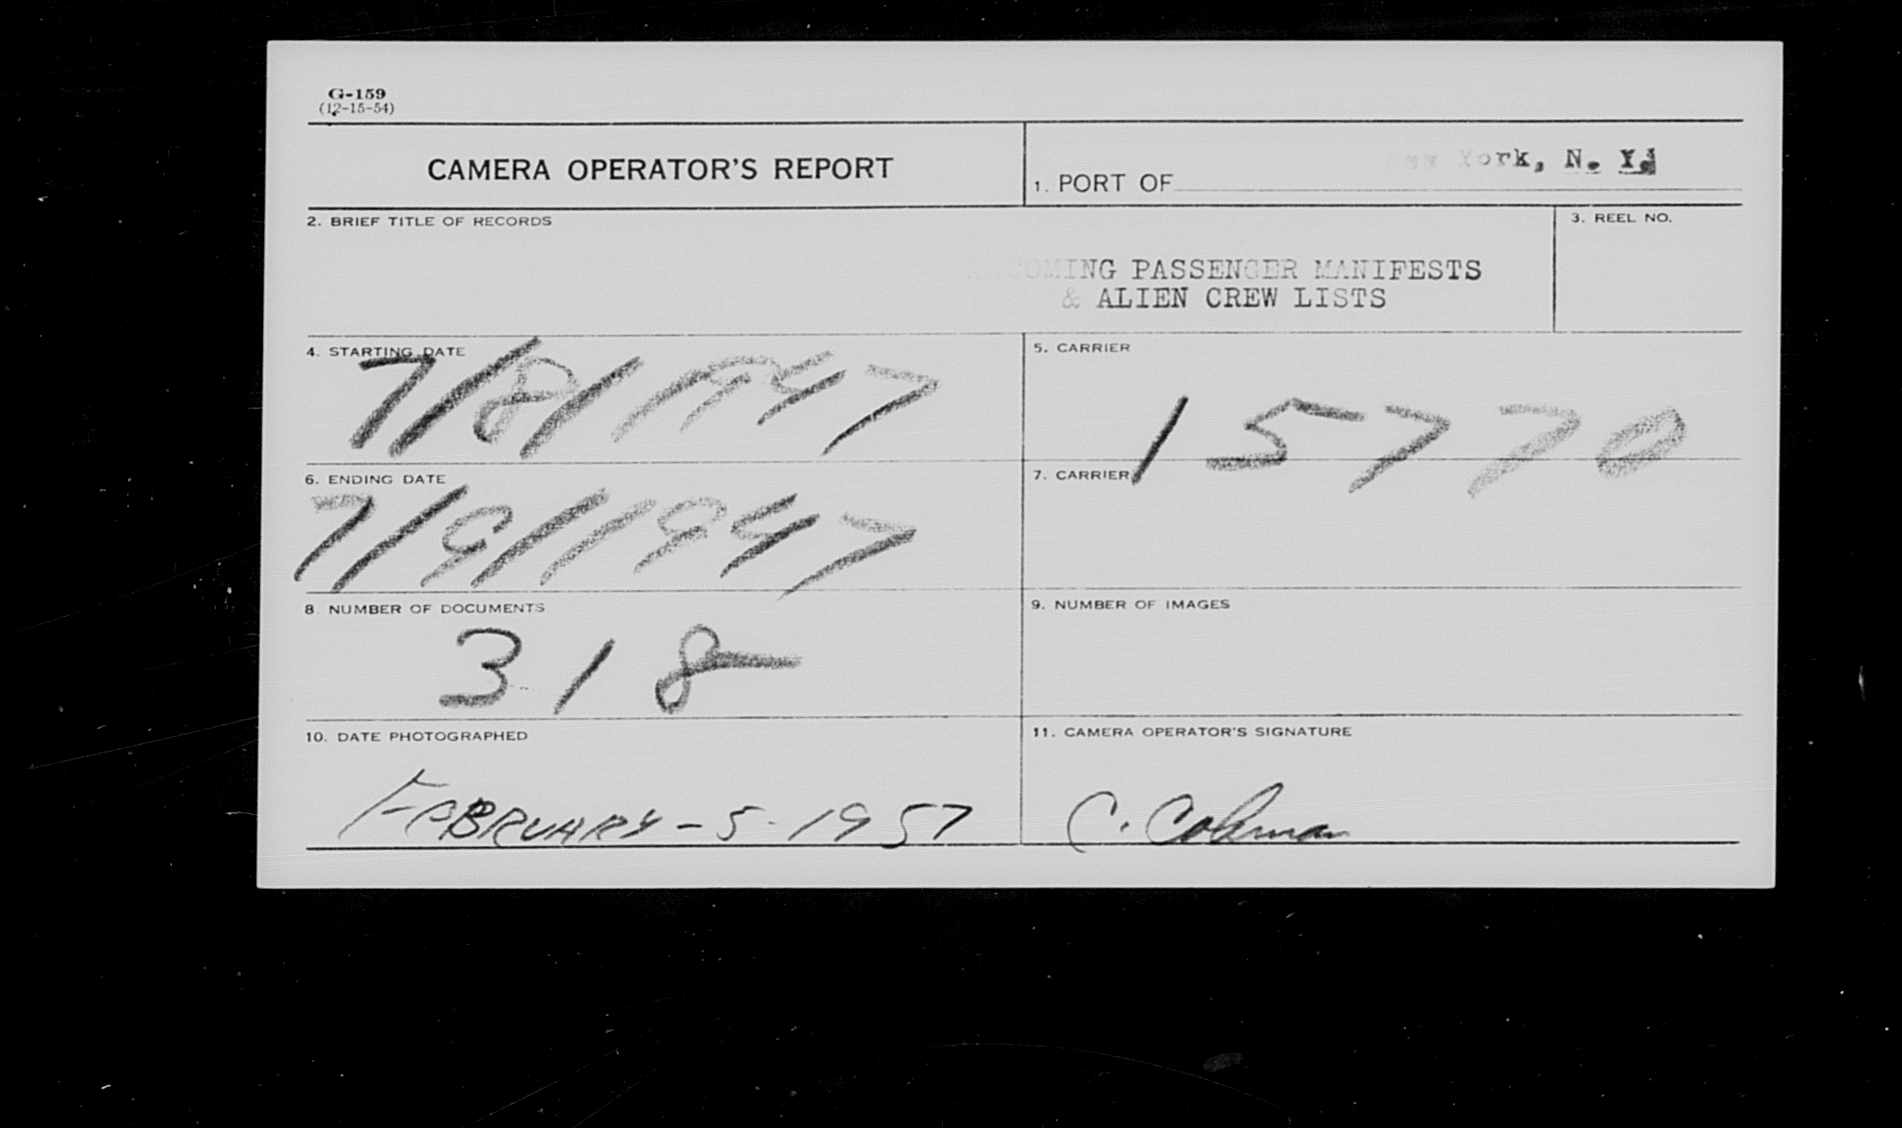 G-159
(12-15-54)
CAMERA OPERATOR'S REPORT
1. PORT OF New York, N. Y.
2. BRIEF TITLE OF RECORDS
3. REEL NO.
INCOMING PASSENGER MANIFESTS
& ALIEN CREW LISTS
4. STARTING DATE
7/8/1947
5. CARRIER
15770
6. ENDING DATE
7/9/1947
7. CARRIER
8. NUMBER OF DOCUMENTS
318
9. NUMBER OF IMAGES
10. DATE PHOTOGRAPHED
FEBRUARY-5-1957
11. CAMERA OPERATOR'S SIGNATURE
C. Coleman